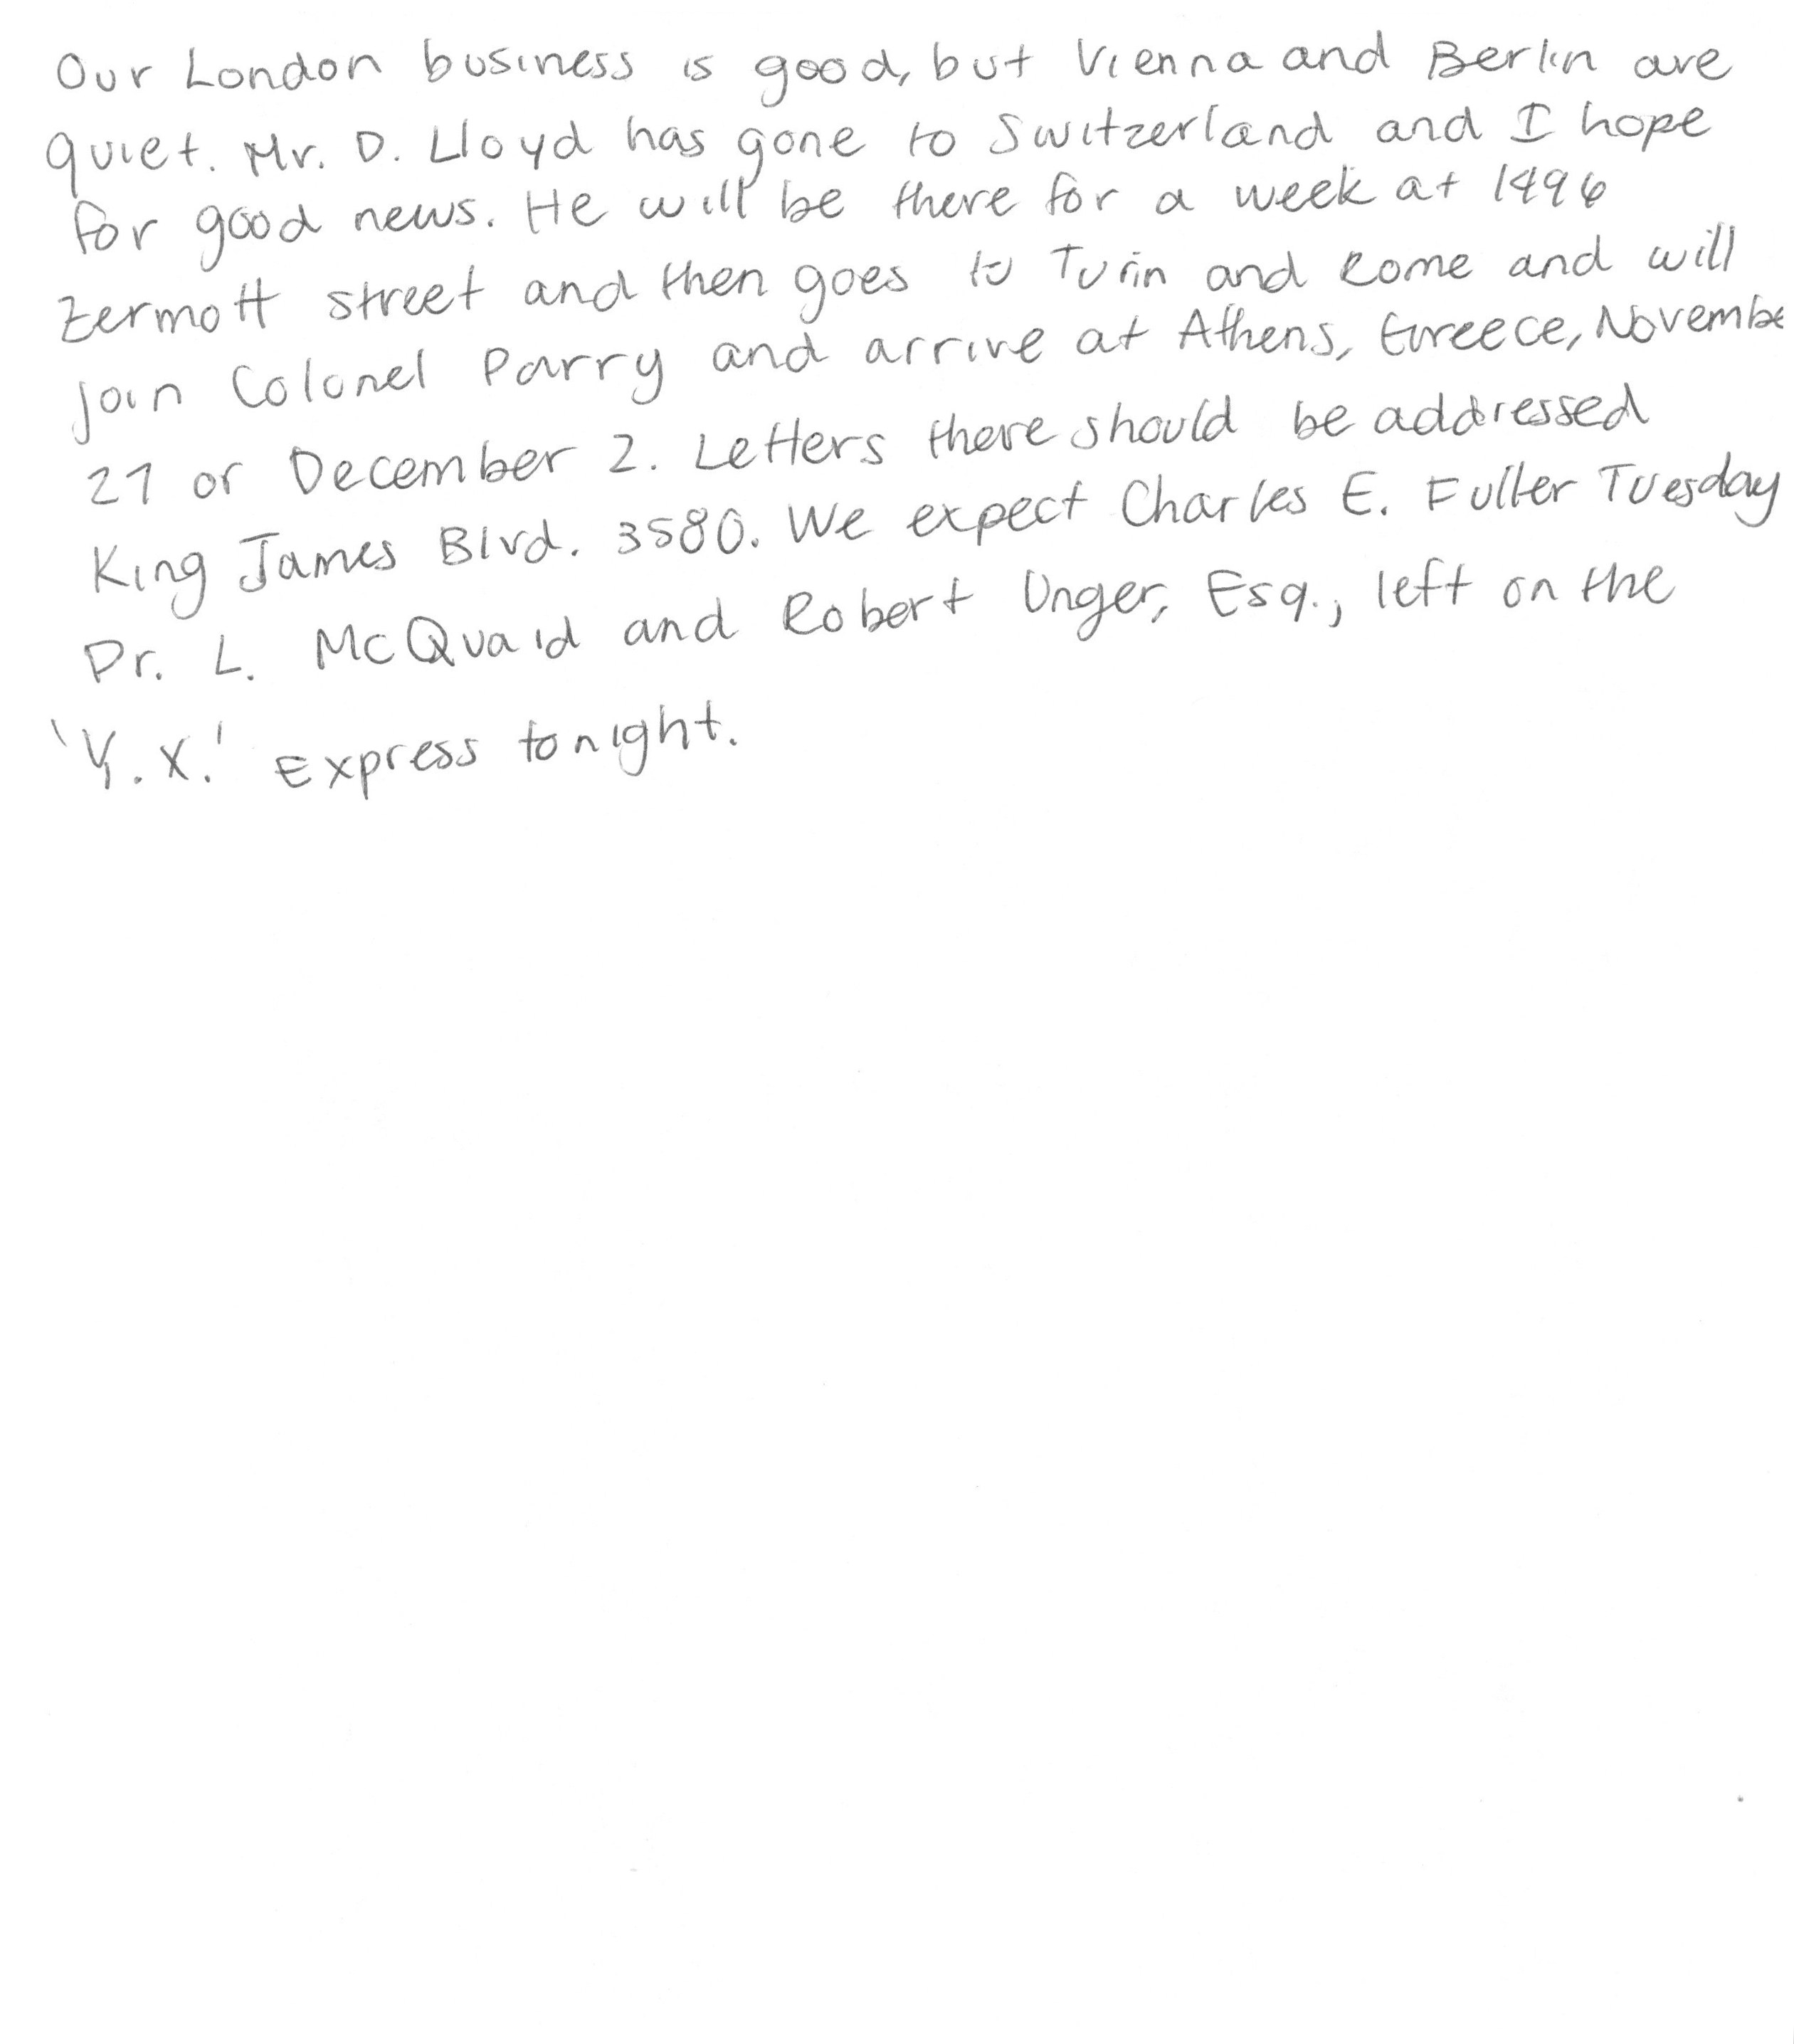 Our London business is good, but Vienna and Berlin are
quiet. Mr. D. Lloyd has gone to Switzerland and I hope
for good news. He will be there for a week at 1496
Zermott street and then goes to Turin and Rome and will
join Colonel Parry and arrive at Athens, Greece, Novembe
27 or December 2. Letters there should be addressed
King James Blvd. 3580. We expect Charles E. Fuller Tuesday
Dr. L. McQuaid and Robert Unger, Esq., left on the
'Y.X.' Express tonight.